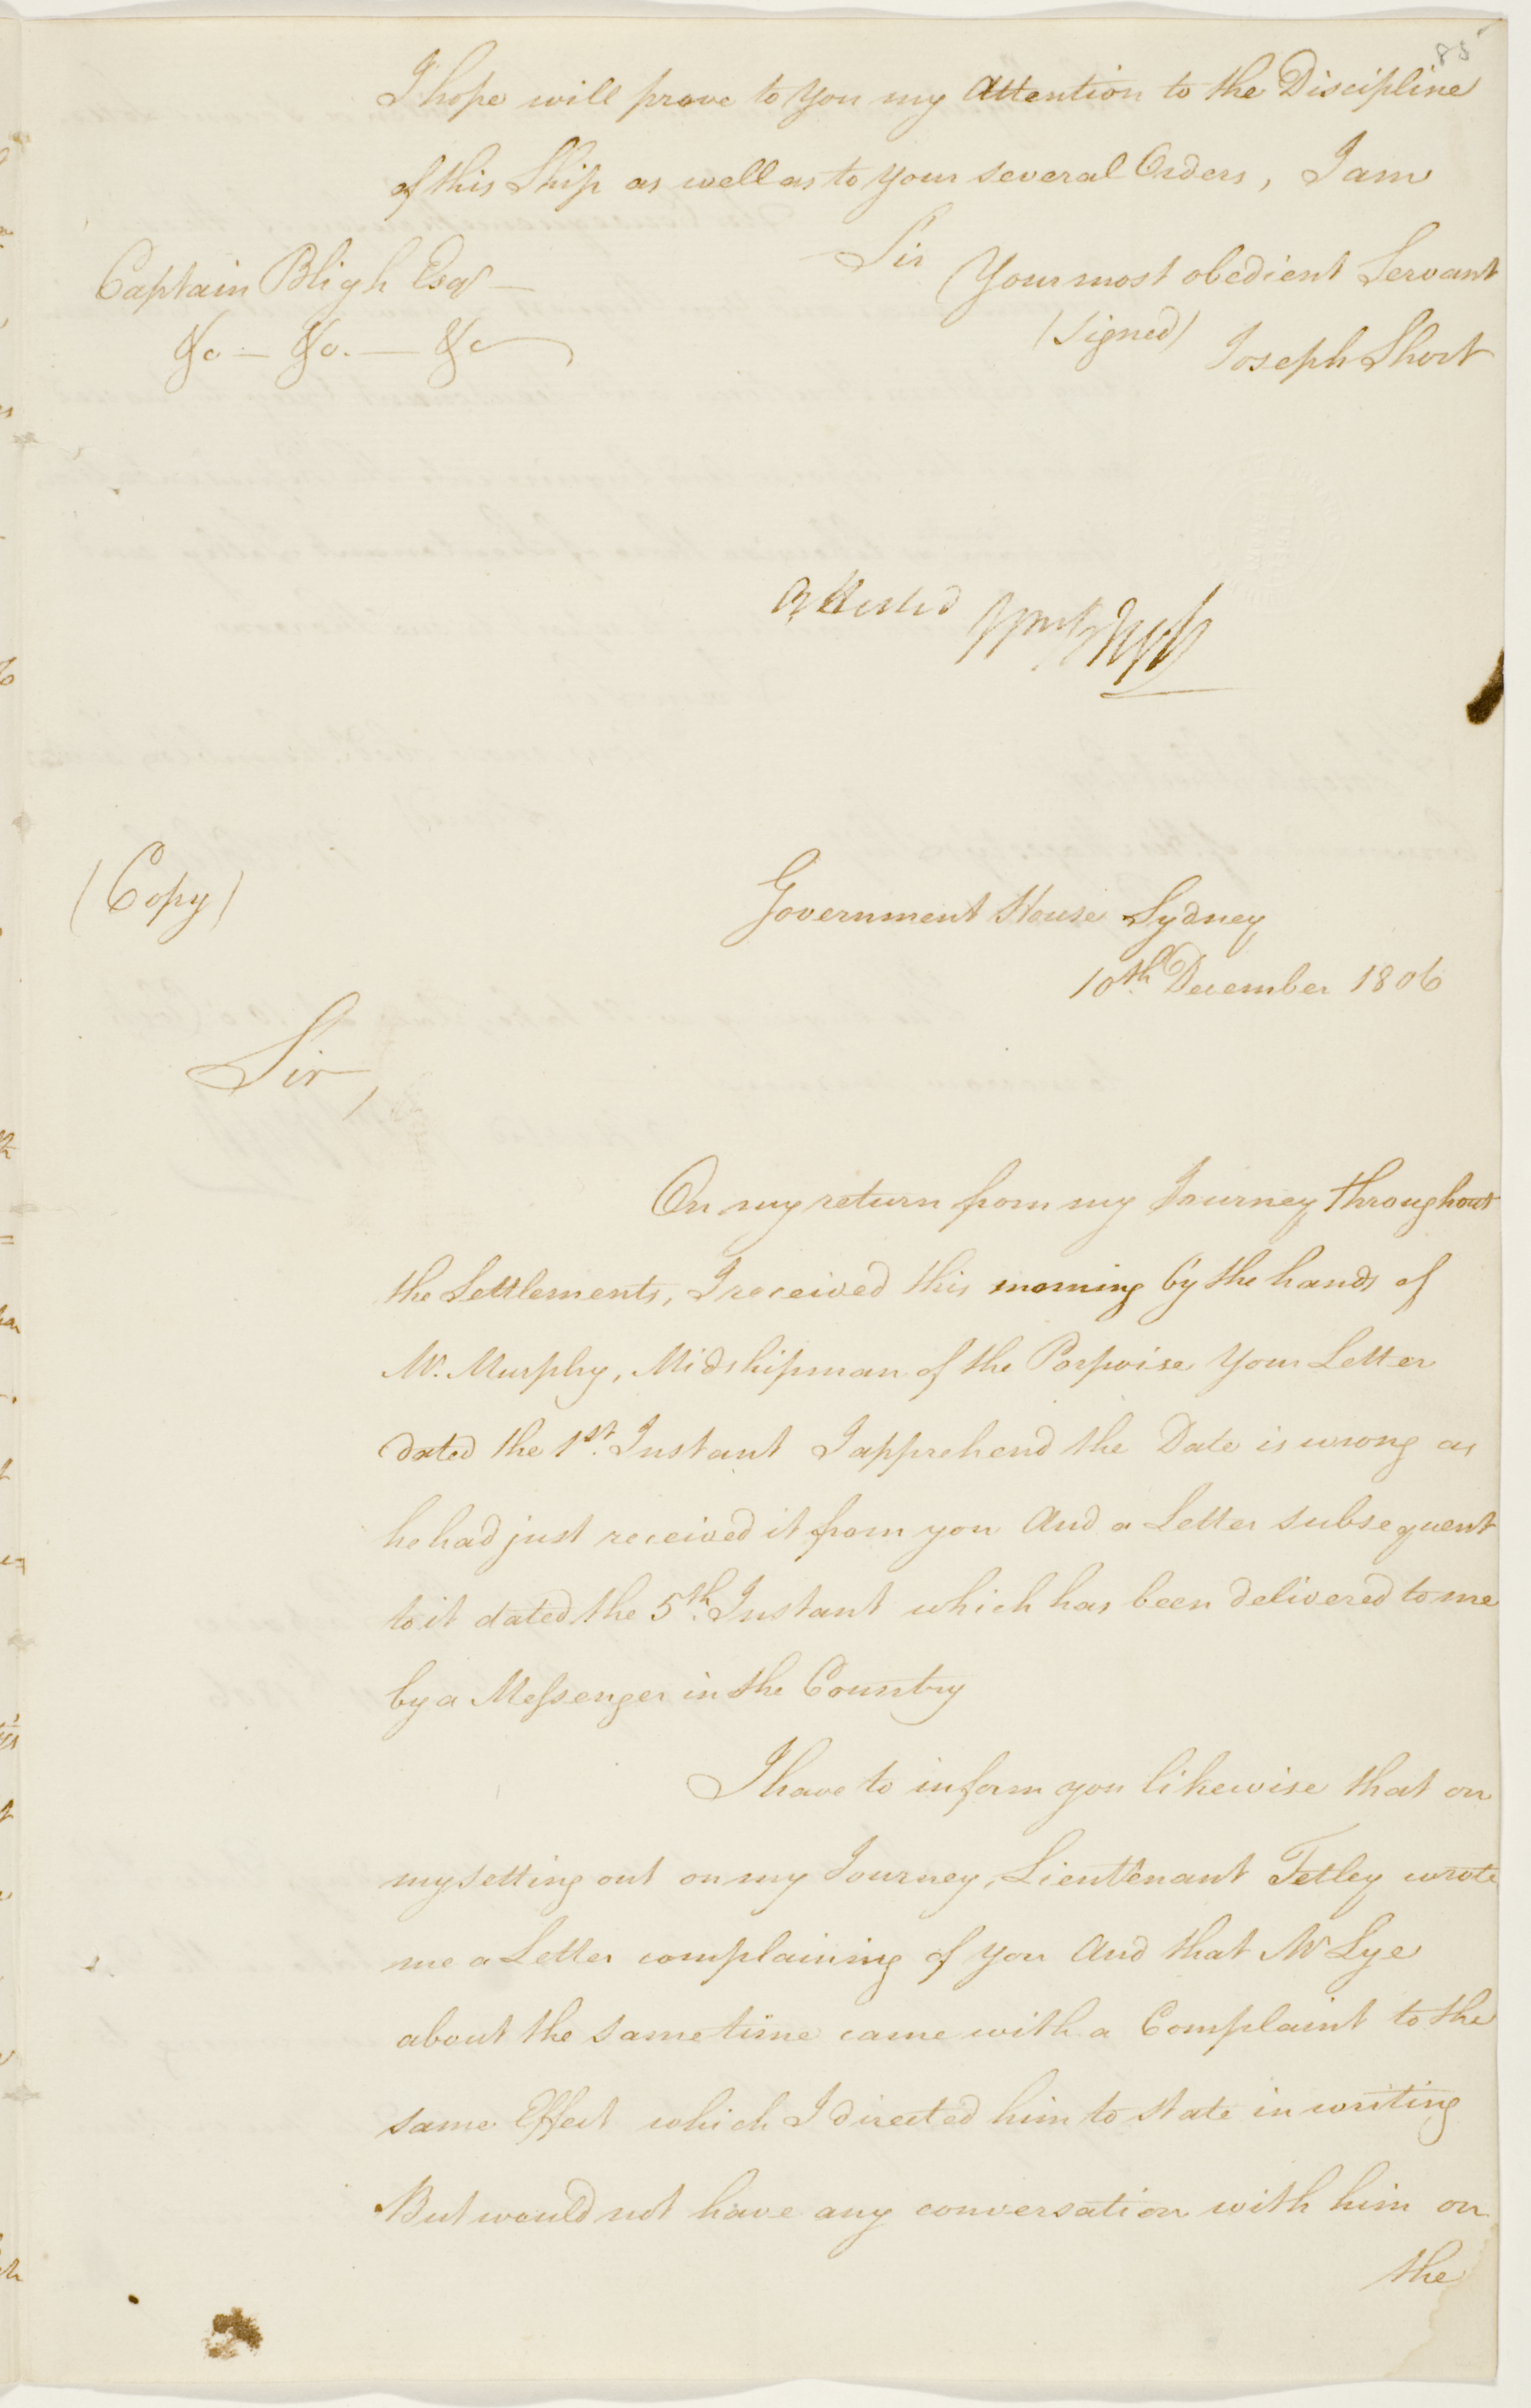 85
I hope will prove to you my Attention to the Discipline
of this Ship as well as to your several Orders, I am
Sir
Your most obedient Servant
(signed) Joseph Short
Captain Bligh Esqr
&c - &c. - &c
Attested Wm Bligh
(Copy)
Government House Sydney
10th December 1806
Sir,
On my return from my Journey throughout
the Settlements, I received this morning by the hands of
Mr. Murphy, Midshipman of the Porpoise your Letter
dated the 1st. Instant I apprehend the Date is wrong as
he had just received it from you And a Letter subsequent
to it dated the 5th. Instant which has been delivered to me
by a Messenger in the Country
I have to inform you likewise that on
my setting out on my Journey, Lieuttenant Tetley wrote
me a Letter complaining of you And that Mr Lye
about the same time came with a Complaint to the
same Effect which I directed him to state in writing
But would not have any conversation with him on
the